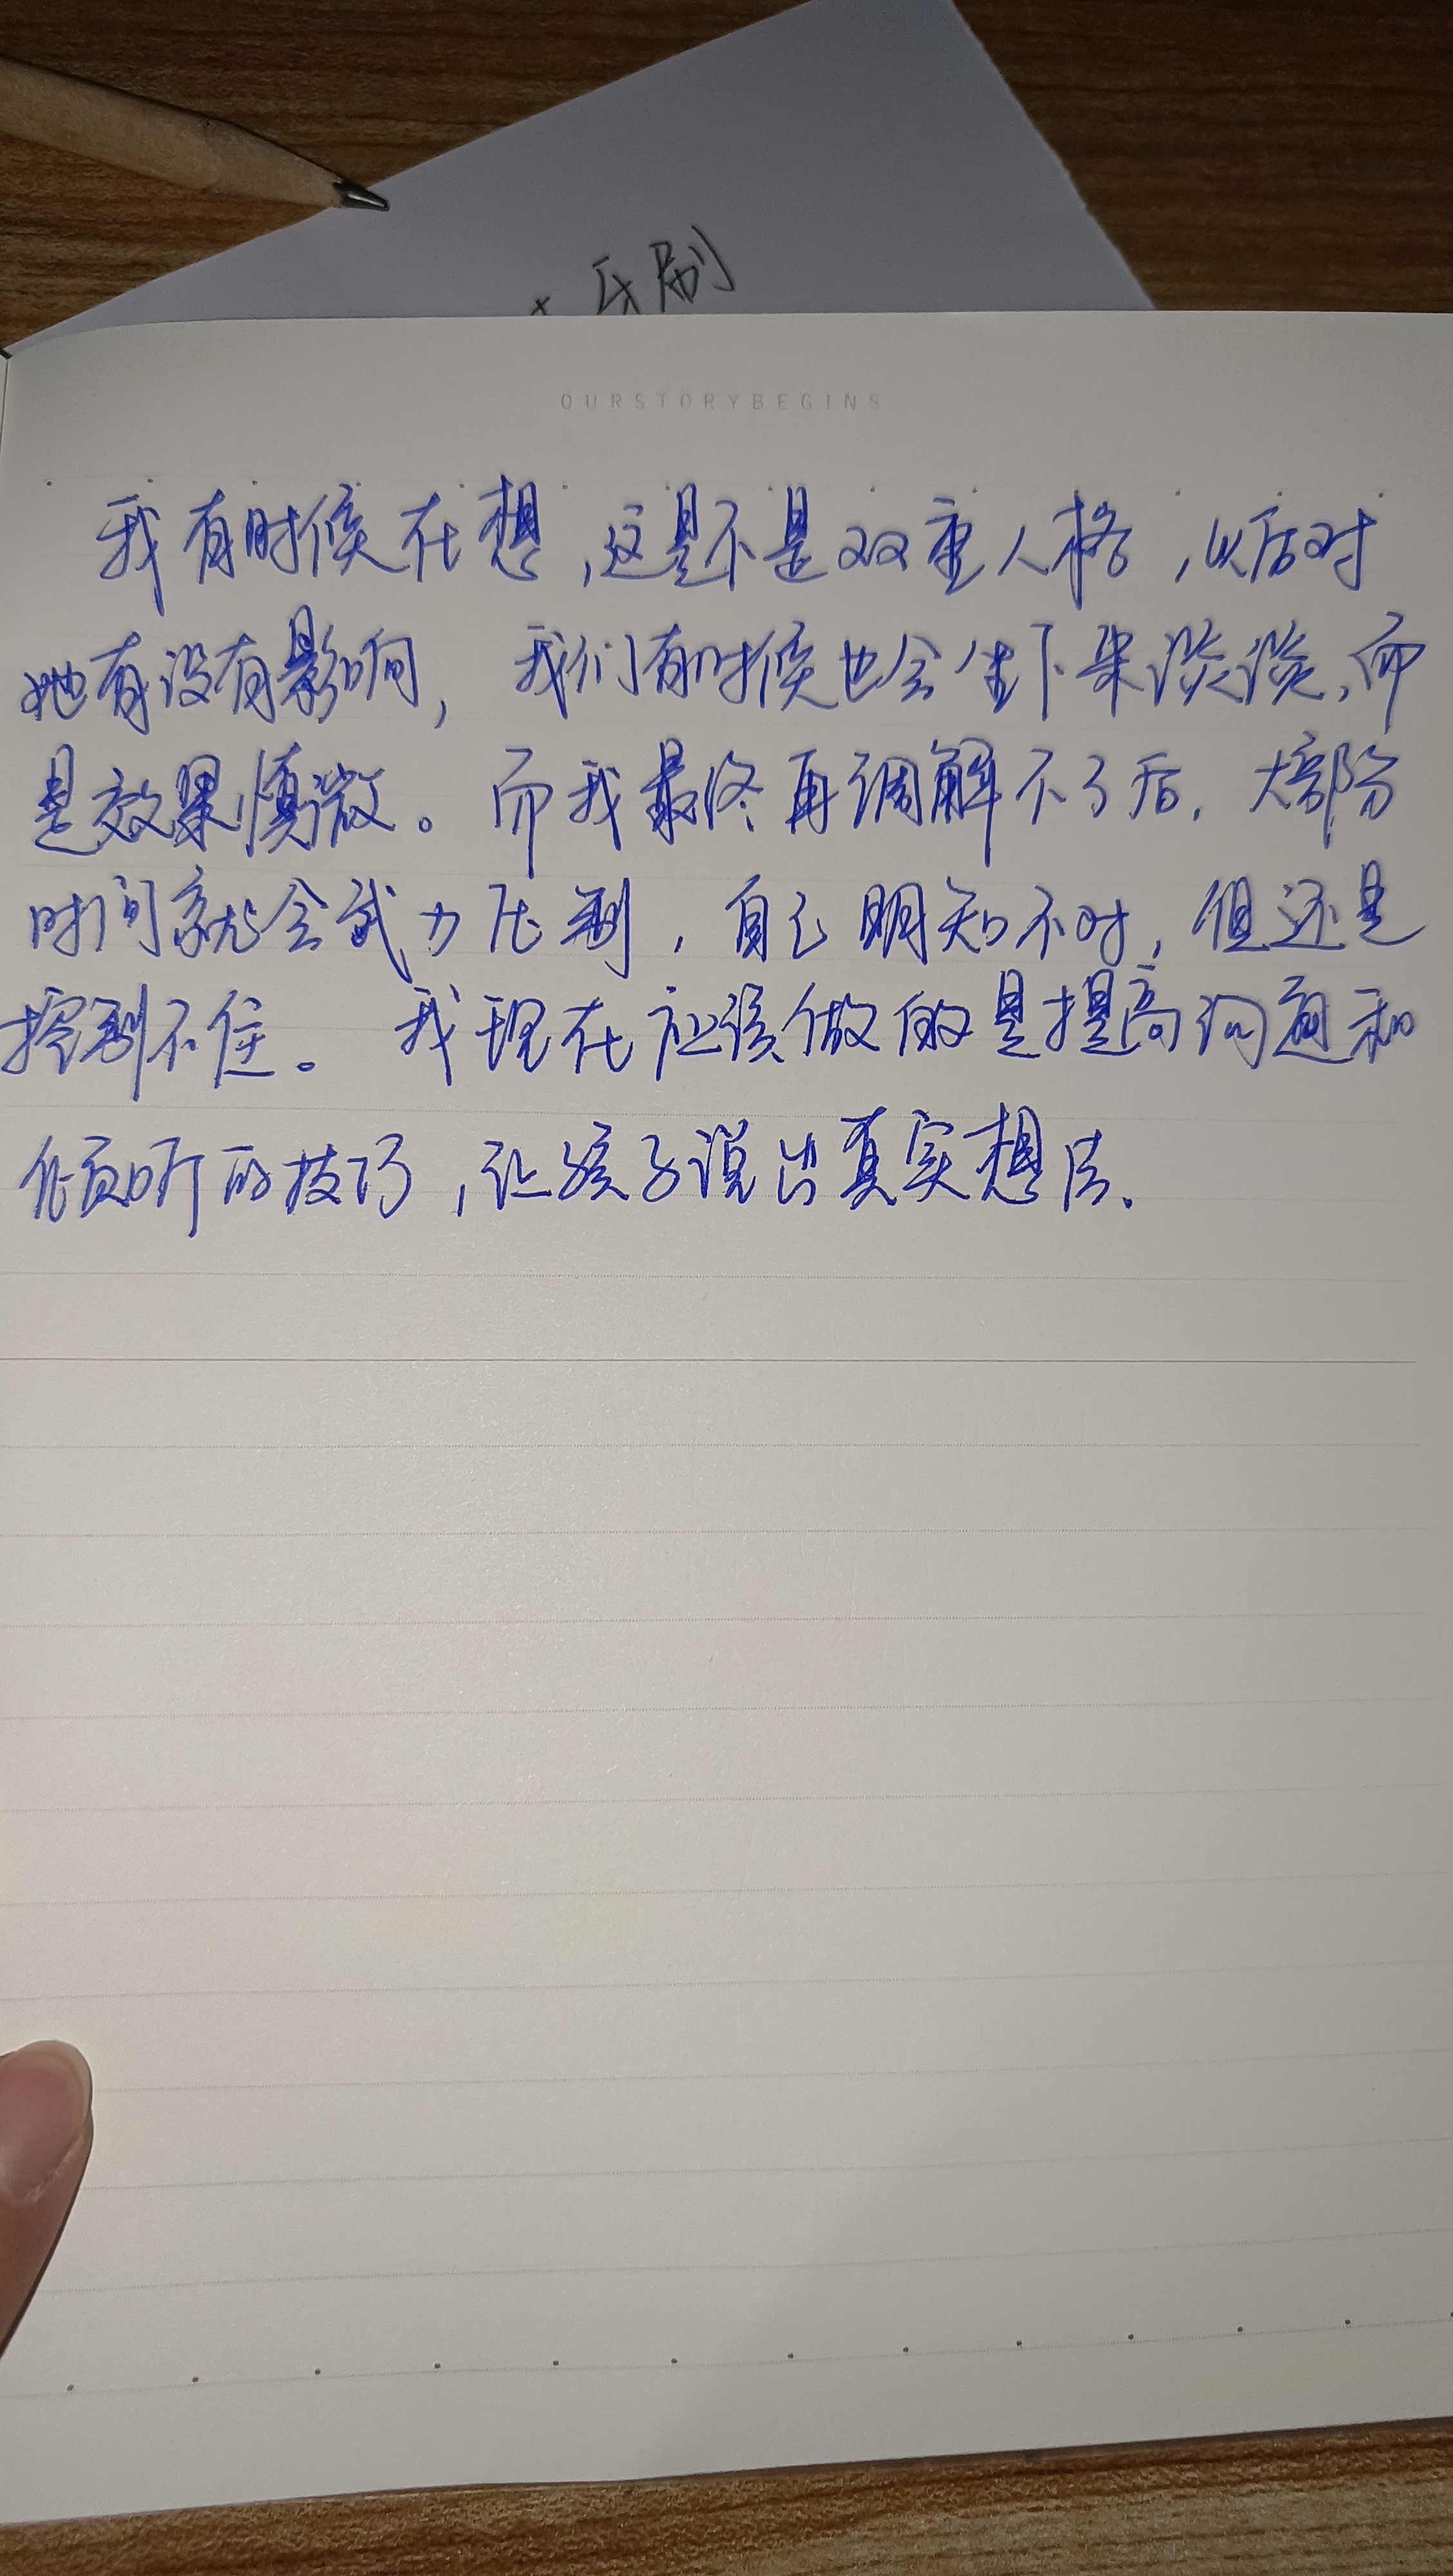 牙刷
OURSTORYBEGINS
我有时候在想,这是不是双重人格,以后对
她有没有影响, 我们有时候也会坐下来谈谈,而
是效果慎微。而我最终再调解不了后,大部分
时间就会武力压制,自己明知不对,但还是
控制不住。 我现在应该做的是提高沟通和
倾听的技巧,让孩子说出真实想法.